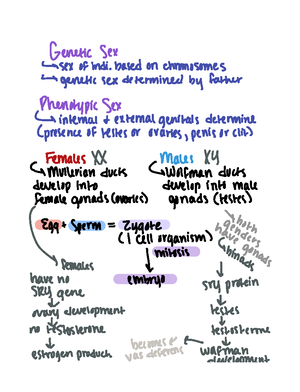 Genetic Sex
↳ sex of indi. based on chromosomes
↳ genetic sex determined by father
Phenotypic Sex
↳ internal + external genitals determine
(presence of testes or ovaries, penis or clit)
Females XX
↳ Mullerian ducts
develop into
female gonads (ovaries)
Males XY
↳ Wolfman ducts
develop into male
gonads (testes)
Egg + Sperm = Zygote
(1 cell organism)
↓ mitosis
embryo
both
genders
have gonads
Females
have no
SRY gene
ovary development
no testosterone
estrogen product
sry protein
testes
testosterone
wolfman
development
becomes
vas deferens